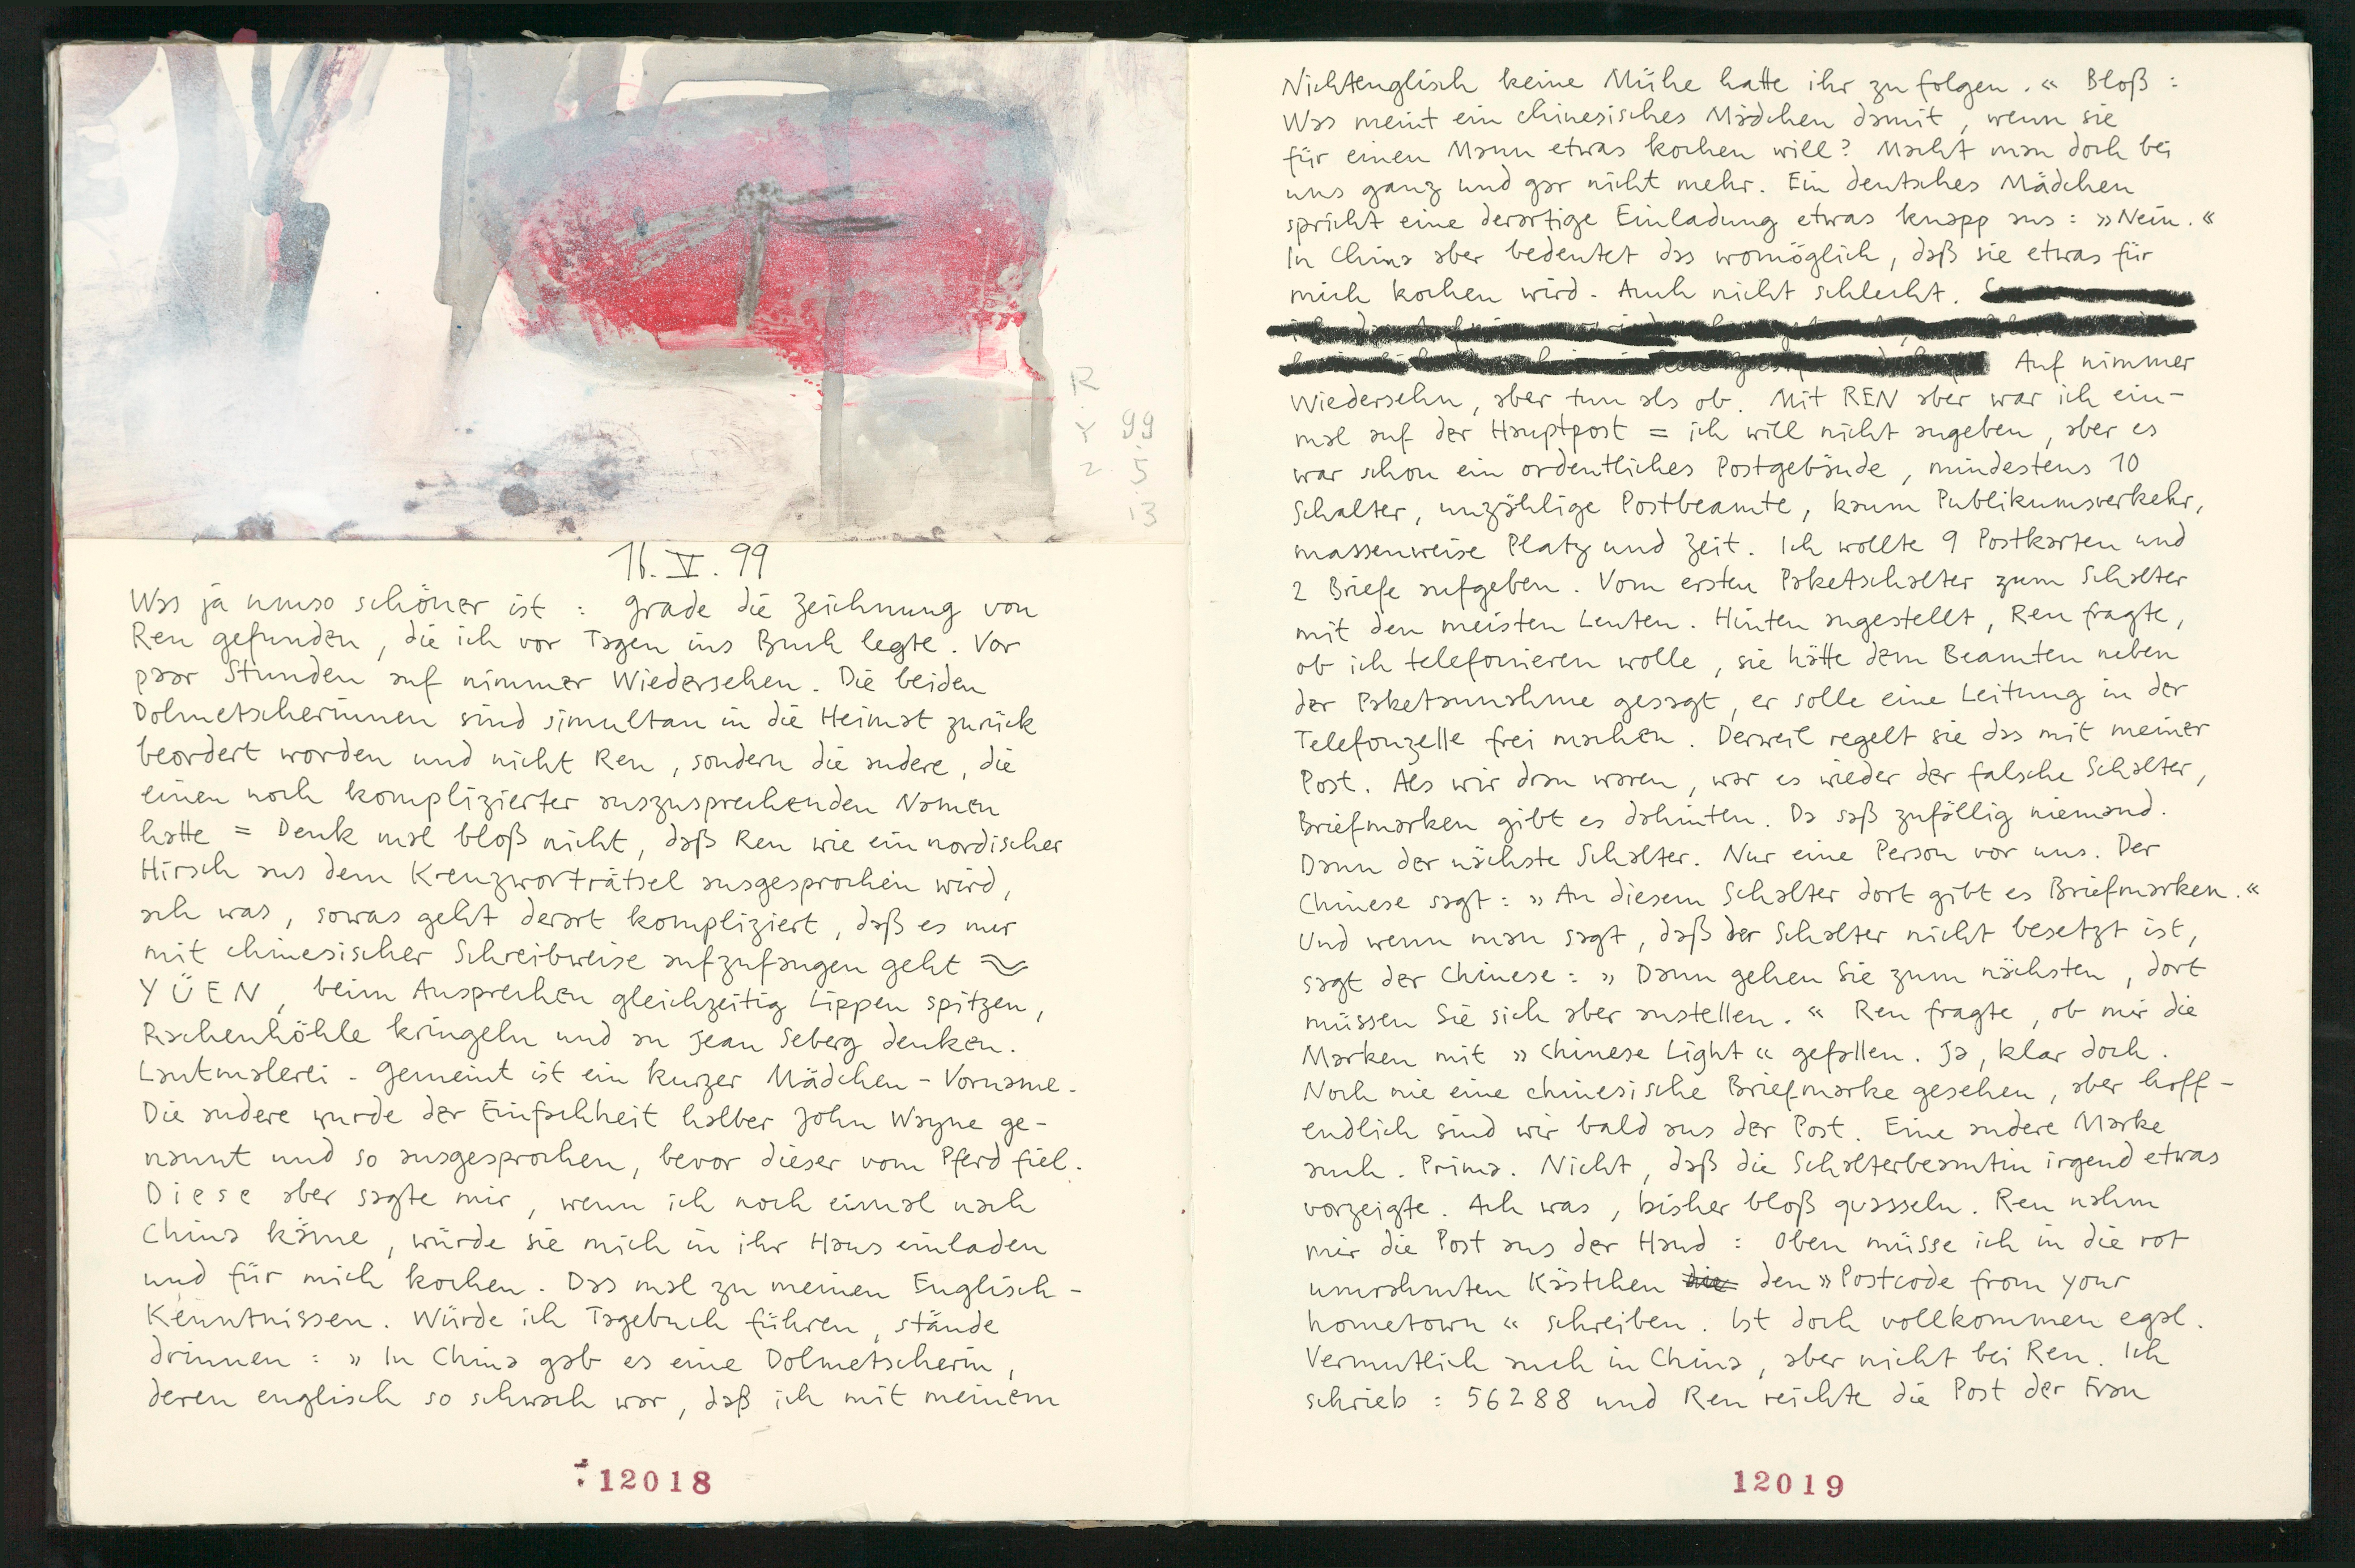 R
Y 99
2 5
13
16. V. 99
Was ja umso schöner ist : grade die Zeichnung von
Ren gefunden, die ich vor Tagen ins Buch legte. Vor
paar Stunden auf nimmer Wiedersehen. Die beiden
Dolmetscherinnen sind simultan in die Heimat zurück
beordert worden und nicht Ren, sondern die andere, die
einen noch komplizierter auszusprechenden Namen
hatte = Denk mal bloß nicht, daß Ren wie ein nordischer
Hirsch aus dem Kreuzworträtsel ausgesprochen wird,
ach was, sowas geht derart kompliziert, daß es nur
mit chinesischer Schreibweise aufzufangen geht ≈
YÜEN, beim Aussprechen gleichzeitig Lippen spitzen,
Rachenhöhle kringeln und an Jean Seberg denken.
Lautmalerei - Gemeint ist ein kurzer Mädchen-Vorname.
Die andere wurde der Einfachheit halber John Wayne ge-
nannt und so ausgesprochen, bevor dieser vom Pferd fiel.
Diese aber sagte mir, wenn ich noch einmal nach
China käme, würde sie mich in ihr Haus einladen
und für mich kochen. Das mal zu meinen Englisch-
Kenntnissen. Würde ich Tagebuch führen, stände
drinnen : » In China gab es eine Dolmetscherin,
deren englisch so schwach war, daß ich mit meinem
12018
Nichtenglisch keine Mühe hatte ihr zu folgen. « Bloß :
Was meint ein chinesisches Mädchen damit, wenn sie
für einen Mann etwas kochen will? Macht man doch bei
uns ganz und gar nicht mehr. Ein deutsches Mädchen
spricht eine derartige Einladung etwas knapp aus : » Nein. «
In China aber bedeutet das womöglich, daß sie etwas für
mich kochen wird. Auch nicht schlecht.
Auf nimmer
Wiedersehn, aber tun als ob. Mit REN aber war ich ein-
mal auf der Hauptpost = ich will nicht angeben, aber es
war schon ein ordentliches Postgebäude, mindestens 10
Schalter, unzählige Postbeamte, kaum Publikumsverkehr,
massenweise Platz und Zeit. Ich wollte 9 Postkarten und
2 Briefe aufgeben. Vom ersten Paketschalter zum Schalter
mit den meisten Leuten. Hinten angestellt, Ren fragte,
ob ich telefonieren wolle, sie hätte dem Beamten neben
der Paketannahme gesagt, er solle eine Leitung in der
Telefonzelle frei machen. Derweil regelt sie das mit meiner
Post. Als wir dran waren, war es wieder der falsche Schalter,
Briefmarken gibt es dahinten. Da saß zufällig niemand.
Dann der nächste Schalter. Nur eine Person vor uns. Der
Chinese sagt : » An diesem Schalter dort gibt es Briefmarken. «
Und wenn man sagt, daß der Schalter nicht besetzt ist,
sagt der Chinese : » Dann gehen Sie zum nächsten, dort
müssen Sie sich aber anstellen. « Ren fragte, ob mir die
Marken mit » Chinese Light « gefallen. Ja, klar doch.
Noch nie eine chinesische Briefmarke gesehen, aber hoff-
endlich sind wir bald aus der Post. Eine andere Marke
auch. Prima. Nicht, daß die Schalterbeamtin irgend etwas
vorzeigte. Ach was, bisher bloß quasseln. Ren nahm
mir die Post aus der Hand : Oben müsse ich in die rot
umrahmten Kästchen die den » Postcode from your
hometown « schreiben. Ist doch vollkommen egal.
Vermutlich auch in China, aber nicht bei Ren. Ich
schrieb : 56288 und Ren reichte die Post der Frau
12019